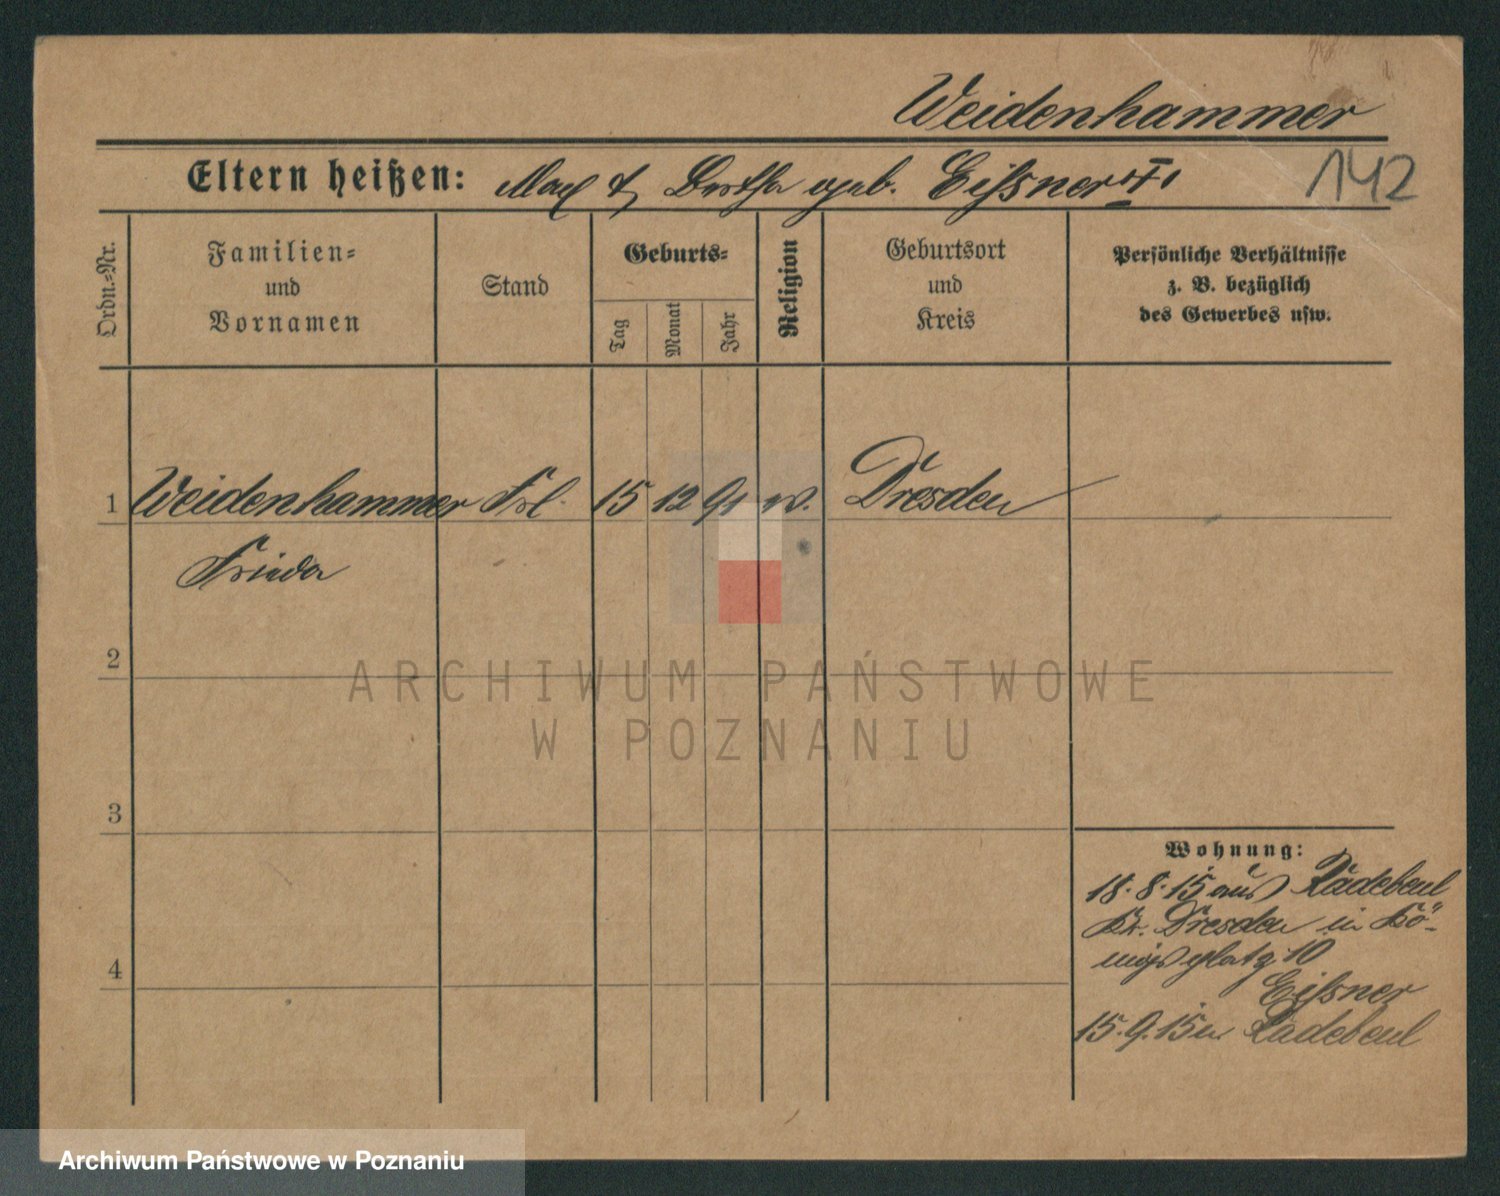 Weidenhammer
Eltern heißen: Max & Drotha geb. Eißner
142
Ordn.-Nr.
Familien-
und
Vornamen
Stand
Geburts-
Tag
Monat
Jahr
Religion
Geburtsort
und
Kreis
Persönliche Verhältnisse
z. B. bezüglich
des Gewerbes usw.
1 Weidenhammer Frl. 15 12 91 Dresden
Frieda
2
ARCHIWUM PAŃSTWOWE
W POZNANIU
3
Wohnung:
18.8.15 aus Radebeul
Kr. Dresden in Kö-
nigsplatz 10
4
Eißner
15.9.15 n Radebeul
Archiwum Państwowe w Poznaniu